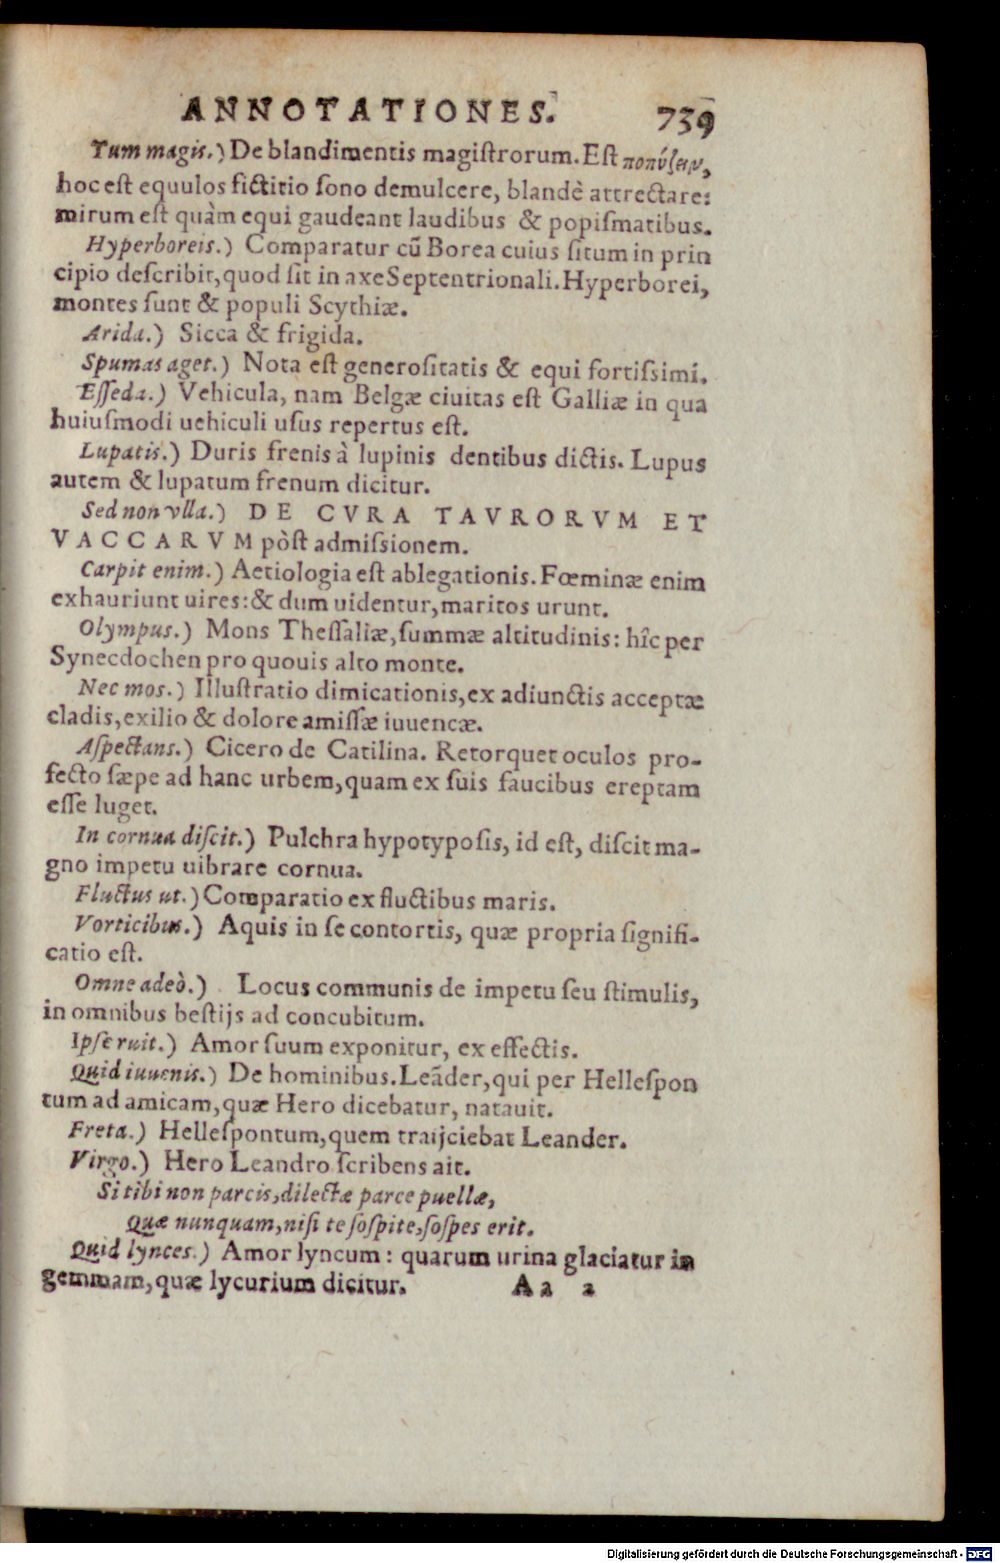 ANNOTATIONES. 739
Tum magis.) De blandimentis magiſtrorum. Eſt ποπύζειν,
hoc eſt equulos fictitio ſono demulcere, blandè attrectare:
mirum eſt quàm equi gaudeant laudibus & popiſmatibus.
Hyperboreis.) Comparatur cũ Borea cuius ſitum in prin
cipio deſcribit, quod ſit in axe Septentrionali. Hyperborei,
montes ſunt & populi Scythiæ.
Arida.) Sicca & frigida.
Spumas aget.) Nota eſt generoſitatis & equi fortiſsimi.
Eſſeda.) Vehicula, nam Belgæ ciuitas eſt Galliæ in qua
huiuſmodi uehiculi uſus repertus eſt.
Lupatis.) Duris frenis à lupinis dentibus dictis. Lupus
autem & lupatum frenum dicitur.
Sed non vlla.) DE CVRA TAVRORVM ET
VACCARVM pòſt admiſsionem.
Carpit enim.) Aetiologia eſt ablegationis. Fœminæ enim
exhauriunt uires: & dum uidentur, maritos urunt.
Olympus.) Mons Theſſaliæ, ſummæ altitudinis: hîc per
Synecdochen pro quouis alto monte.
Nec mos.) Illuſtratio dimicationis, ex adiunctis acceptæ
cladis, exilio & dolore amiſſæ iuuencæ.
Aſpectans.) Cicero de Catilina. Retorquet oculos pro-
fecto ſæpe ad hanc urbem, quam ex ſuis faucibus ereptam
eſſe luget.
In cornua diſcit.) Pulchra hypotypoſis, id eſt, diſcit ma-
gno impetu uibrare cornua.
Fluctus ut.) Comparatio ex fluctibus maris.
Vorticibus.) Aquis in ſe contortis, quæ propria ſignifi-
catio eſt.
Omne adeò.) Locus communis de impetu ſeu ſtimulis,
in omnibus beſtijs ad concubitum.
Ipſe ruit.) Amor ſuum exponitur, ex effectis.
Quid iuuenis.) De hominibus. Leãder, qui per Helleſpon
tum ad amicam, quæ Hero dicebatur, natauit.
Freta.) Helleſpontum, quem traijciebat Leander.
Virgo.) Hero Leandro ſcribens ait.
Si tibi non parcis, dilectæ parce puellæ,
Quæ nunquam, niſi te ſoſpite, ſoſpes erit.
Quid lynces.) Amor lyncum: quarum urina glaciatur in
gemmam, quæ lycurium dicitur. Aa a
Digitalisierung gefördert durch die Deutsche Forschungsgemeinschaft - DFG